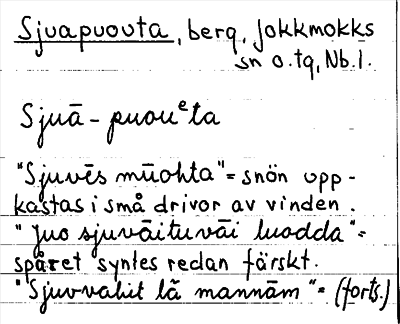 Sjuapuouta, berg, Jokkmokks
sn o. tg, Nb. l.
Sjuā-puouᵉta
"Sjuvēs mūohta" = snön upp-
kastas i små drivor av vinden.
"Juo sjuvāituvāi luodda" =
spåret syntes redan färskt.
"Sjuvvahit lā mannām" = (forts.)